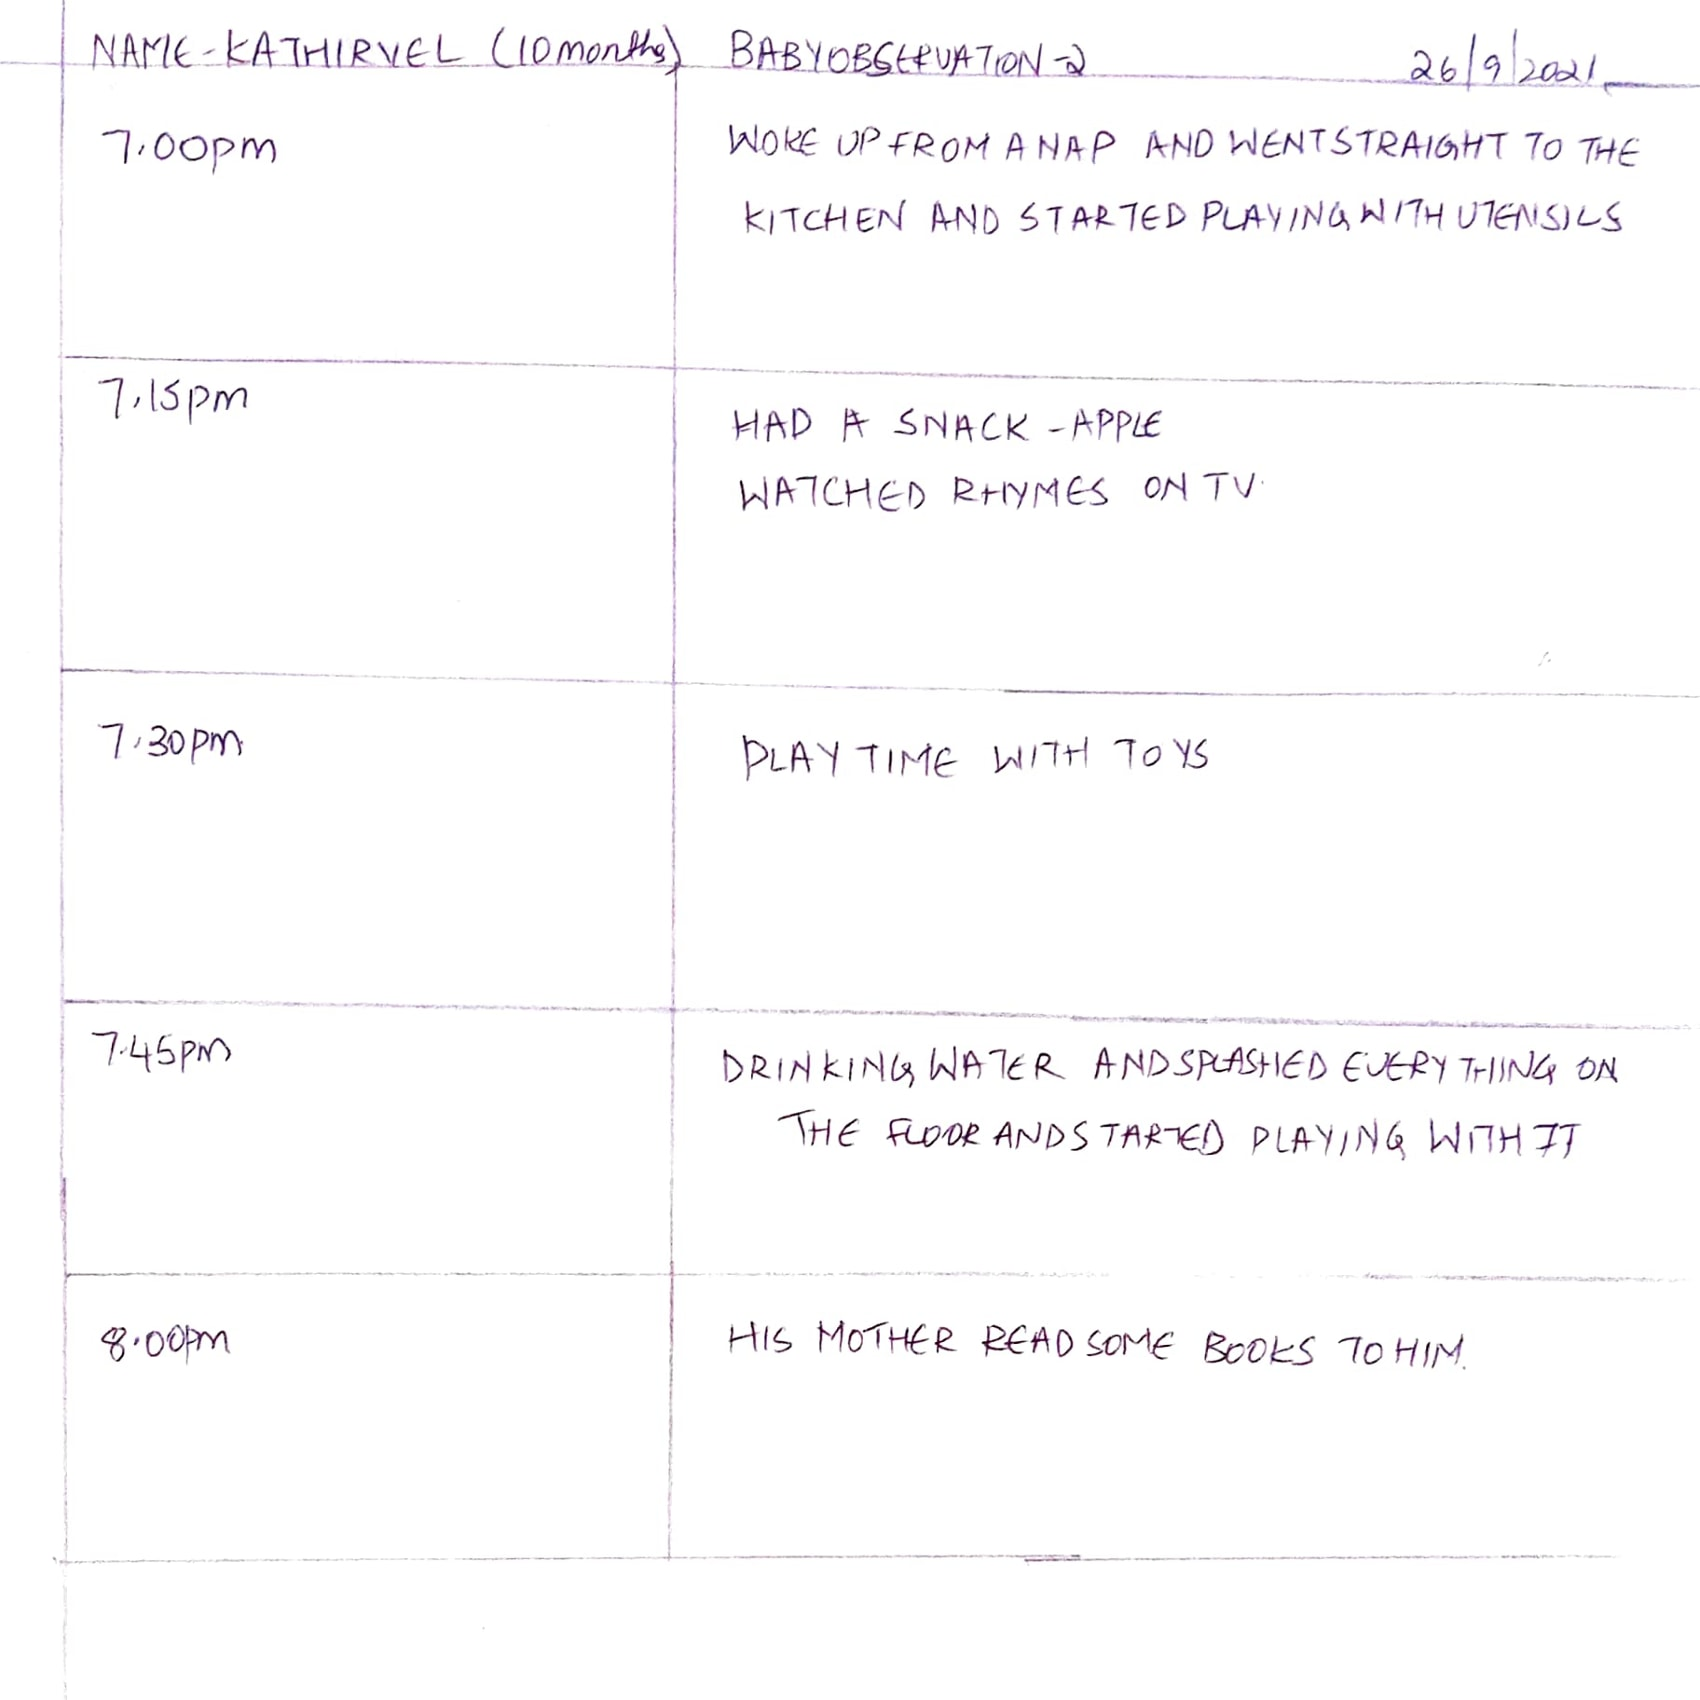 NAME-KATHIRVEL (10 months) BABY OBSERVATION-2 26/9/2021
7.00pm WOKE UP FROM A NAP AND WENT STRAIGHT TO THE
KITCHEN AND STARTED PLAYING WITH UTENSILS
7.15pm
HAD A SNACK - APPLE
WATCHED RHYMES ON TV.
7.30pm PLAY TIME WITH TOYS
7.45pm DRINKING WATER AND SPLASHED EVERYTHING ON
THE FLOOR AND STARTED PLAYING WITH IT
8.00pm HIS MOTHER READ SOME BOOKS TO HIM.